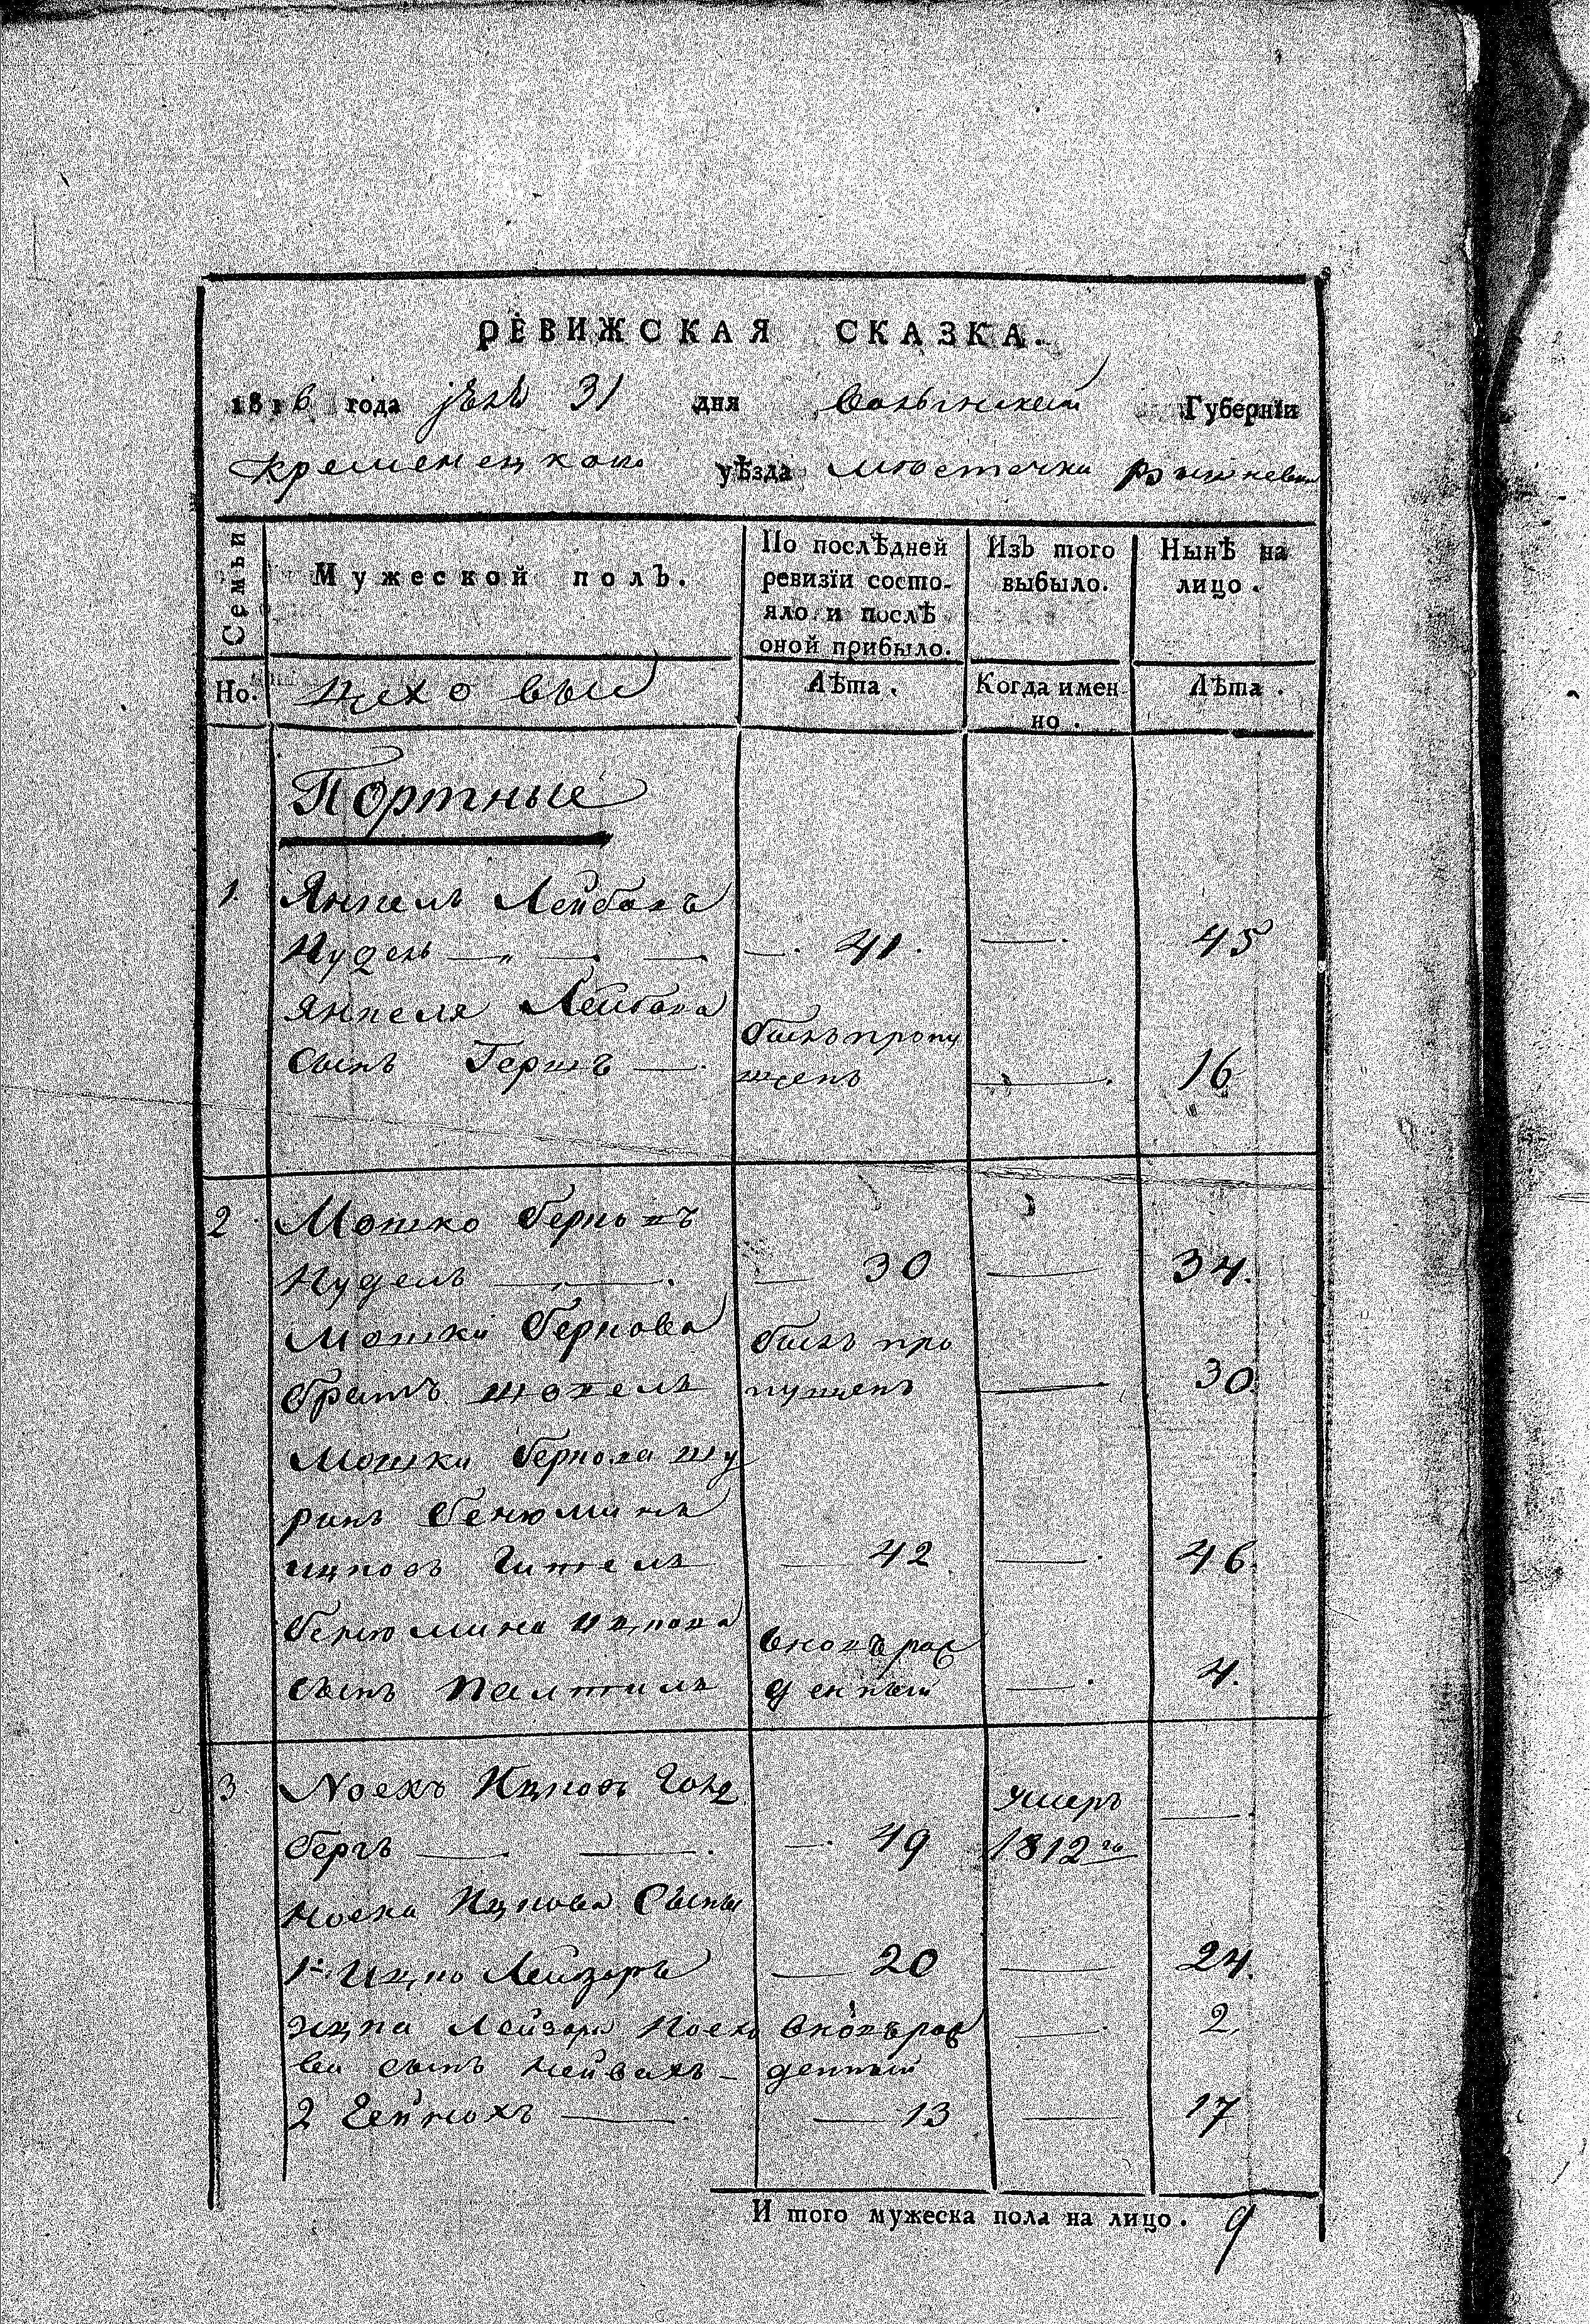 РЕВИЖСКАЯ СКАЗКА.
1816 года 31 дня Волынской Губернїи
Кременецкого уѣзда местечка Вишневца
Семьи
Мужеской полъ.
По послѣдней
ревизїи состо-
яло и послѣ
оной прибыло.
Изъ того
выбыло.
Нынѣ на
лицо.
Но.
Цеховые
Лѣта.
Когда имен-
но.
Лѣта.
Портные
1. Янкель Лейбовъ
Нудель 41. 45
Янкеля Лейбова
сынъ Гершъ
былъ пропу
щенъ
16
2 Мошко Берковъ
Нудель 30 34.
Мошки Беркова
братъ
былъ про
пущенъ
30.
Мошки Беркова шу
ринъ Бенюминъ
Ицковъ 42 46.
Бенюмина Ицкова
сынъ
вновърож
денный
4.
3 Ноехъ Ицковъ Голд
бергъ 49
умеръ
1812го
Ноеха Ицкова сыны
1й Ицко Лейзоръ 20 24.
Ицка Лейзора Ноехо
ва сынъ
вновърож
денный
2.
2 13 17
И того мужеска пола на лицо. 9